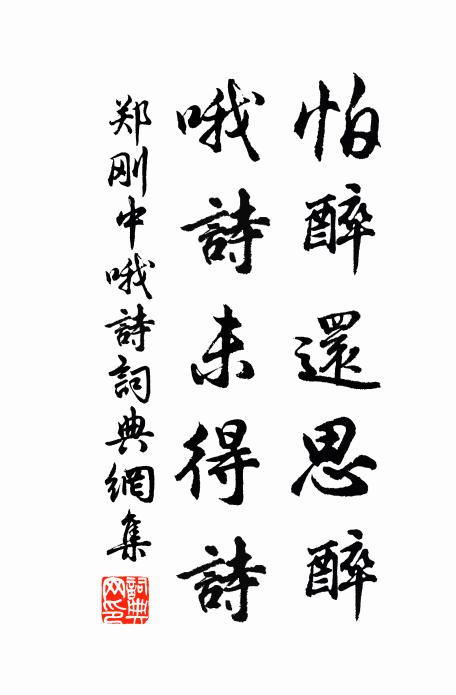 怕醉還思醉
哦詩未得詩
郑刚中哦詩詞典網集
詞典网印